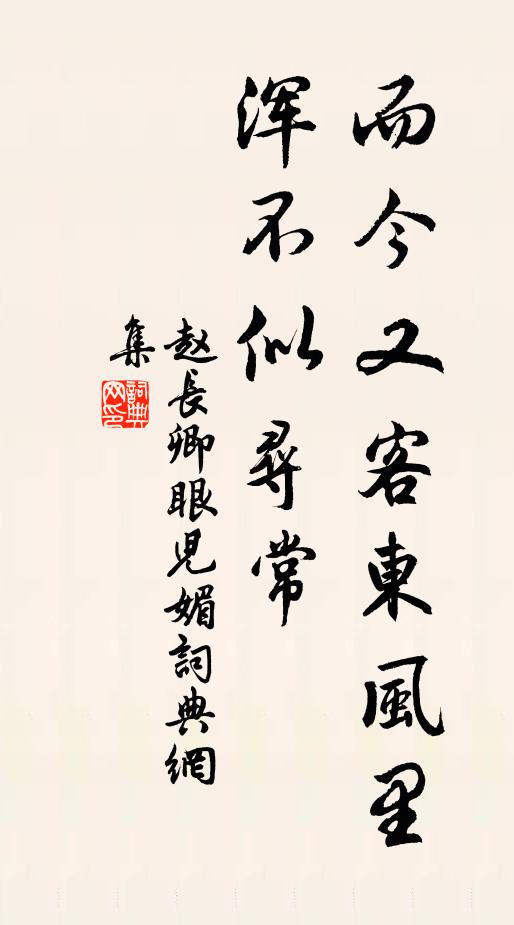 而今又客東風里
浑不似尋常
赵長卿眼児媚詞典網
集
詞典
网印